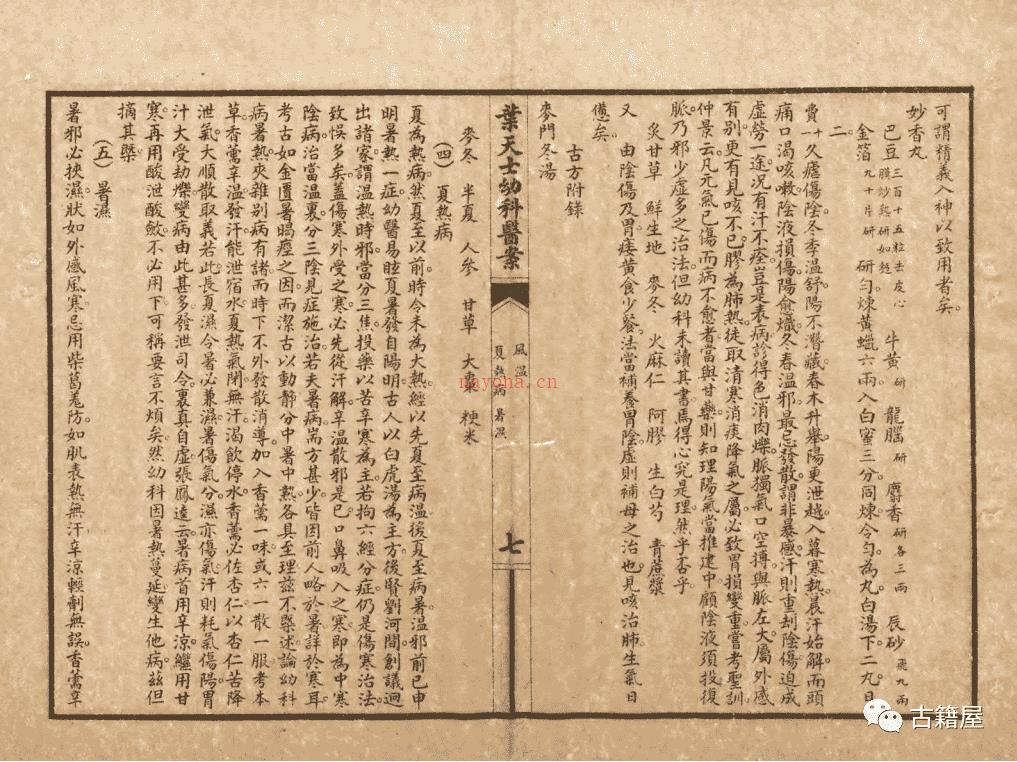 可謂精義入神以致用者矣。
妙香丸
巴豆三百十五粒去皮心膜炒熟研如麪　牛黄研　龍腦研　麝香研各三兩　辰砂飛九兩
金箔九十片研　研勻煉黄蠟六兩。入白蜜三分。同煉令勻為丸。白湯下二丸。日
二。
費十一　久瘧傷陰。冬季温舒。陽不潛藏。春木升舉。陽更泄越。入暮寒熱。晨汗始解。而頭
痛口渴咳嗽。陰液損傷。陽愈熾。冬春温邪。最忌發散。謂非暴感。汗則重刦陰傷。迫成
虛勞一途。況有汗不痊。豈是表病。診得色消肉爍。脈獨氣口空搏。與脈左大。屬外感
有別。更有見咳不已。膠為肺熱。徒取清寒消痰降氣之屬。必致胃損變重。嘗考聖訓
仲景云。凡元氣已傷。而病不愈者。當與甘藥。則知理陽氣。當推建中。顧陰液。須投復
脈。乃邪少虛多之治法。但幼科未讀其書。焉得心究是理。然乎否乎。
炙甘草　鮮生地　麥冬　火麻仁　阿膠　生白芍　青蔗漿
又　由陰傷及胃。痿黄食少餐。法當補養胃陰。虛則補母之治也。見咳治肺。生氣日
憊矣。
古方附錄
麥門冬湯
葉天士幼科醫案
風温
夏熱病　暑濕
七
麥冬　半夏　人參　甘草　大棗　粳米
（四）夏熱病
夏為熱病。然夏至以前。時令未為大熱。經以先夏至病温。後夏至病暑。温邪前已申
明。暑熱一症。幼醫易眩。夏暑發自陽明。古人以白虎湯為主方。後賢劉河間創議迥
出諸家。謂温熱時邪。當分三焦投藥。以苦辛寒為主。若拘六經分症。仍是傷寒治法
致悞多矣。蓋傷寒外受之寒。必先從汗解。辛温散邪是已。口鼻吸入之寒。即為中寒
陰病。治當温裏。分三陰見症施治。若夫暑病。耑方甚少。皆因前人略於暑。詳於寒耳
考古如金匱暑暍痙之因。而潔古以動静分中暑中熱。各具至理。茲不槩述。論幼科
病暑熱。夾雜別病有諸。而時下不外發散消導。加入香薷一味。或六一散一服。考本
草香薷辛温發汗。能泄宿水。夏熱氣閉無汗。渴飲停水。香薷必佐杏仁。以杏仁苦降
泄氣。大順散取義若此。長夏濕令。暑必兼濕。暑傷氣分。濕亦傷氣。汗則耗氣傷陽。胃
汁大受劫爍。變病由此甚多。發泄司令。裏真自虛。張鳳逵云。暑病首用辛涼。繼用甘
寒。再用酸泄酸斂。不必用下。可稱要言不煩矣。然幼科因暑熱蔓延。變生他病。茲但
摘其槩
（五）暑濕
暑邪必挾濕。狀如外感風寒。忌用柴葛羌防。如肌表熱無汗。辛涼輕劑無誤。香薷辛
nayona.cn
古籍屋